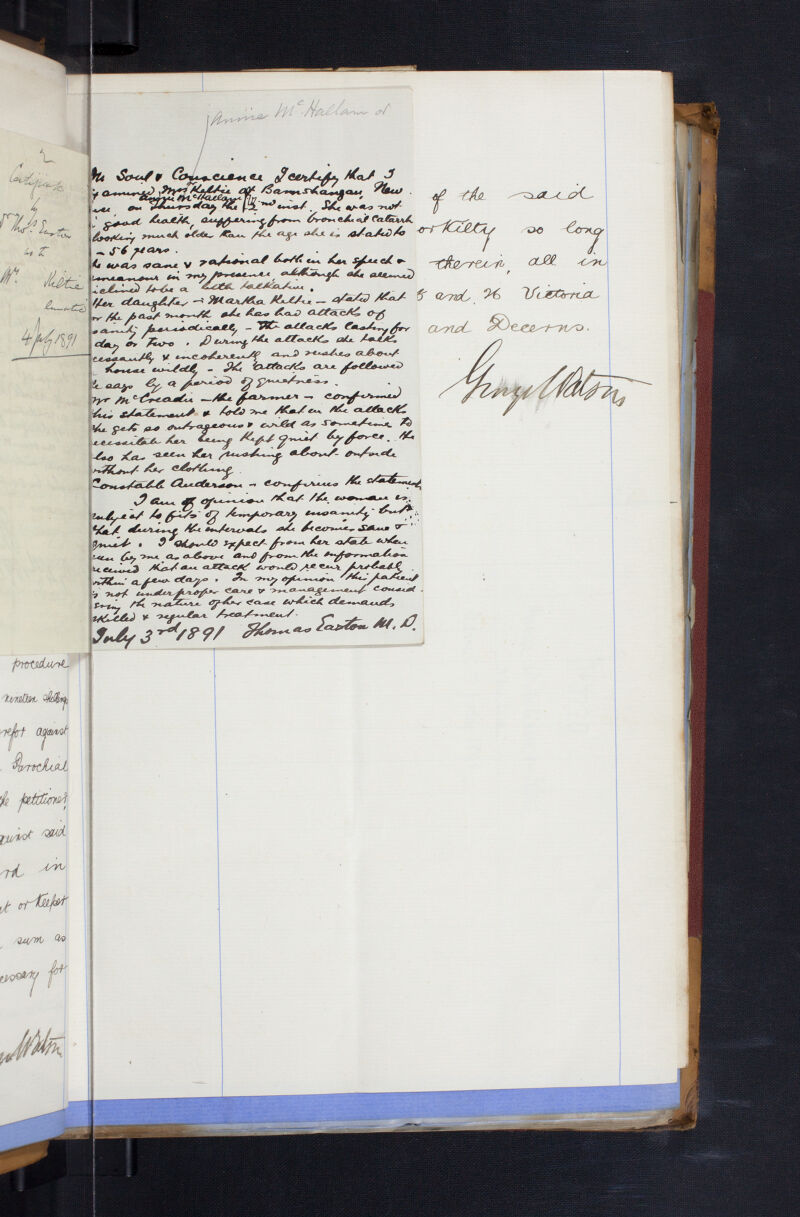 2
Certificate
by
Dr Thos. Easton
as to
Mrs. Kiltie
lunatic
4 July 1891
procedure
nineteen shillings
refor against
Parochial
the petitioner,
gainst said
rd in
at or Keeper
sum as
cessary for
Watson
Annie Mc Hallam or
On Soul & Conscience I certify that I
examined Mrs Keltie at Barnshangan, New
Annie McHallam or
on Thursday the 2nd inst. She was not
good health, suffering from bronchial catarrh
looking much older than the age she is stated to
- 56 years.
he was sane & rational both in her speech &
emeanour in my presence, although she seemed
iclined to be a little talkative.
Her daughter - Martha Keltie - stated that
or the past month she has had attacks of
sanity periodically - The attacks lasting for
day or two. During the attacks she talks
cessantly & incoherently and rushes about
house wildly - The attacks are followed
he says by a period of quietness.
Mr McCreadie - the farmer - confirmed
his statement & told me that in the attacks
he gets so outrageous & wild as sometime to
ecessitate her being kept quiet by force. He
lso has seen her rushing about outside
without her clothing.
Constable Anderson - confirms the statement
I am of opinion that the woman is
subject to fits of temporary insanity but
that during the intervals she becomes sane &
quiet. I should expect from her state when
seen by me as above and from the information
received that an attack would recur probably
within a few days. In my opinion this patient
is not under proper care & management consid-
ering the nature of her case which demands
skilled & regular treatment.
July 3rd 1891 Thomas Easton M.D.
of the said
or Kilty so long
therein, all in
5 and 26 Victoria
and Decerns.
George Watson